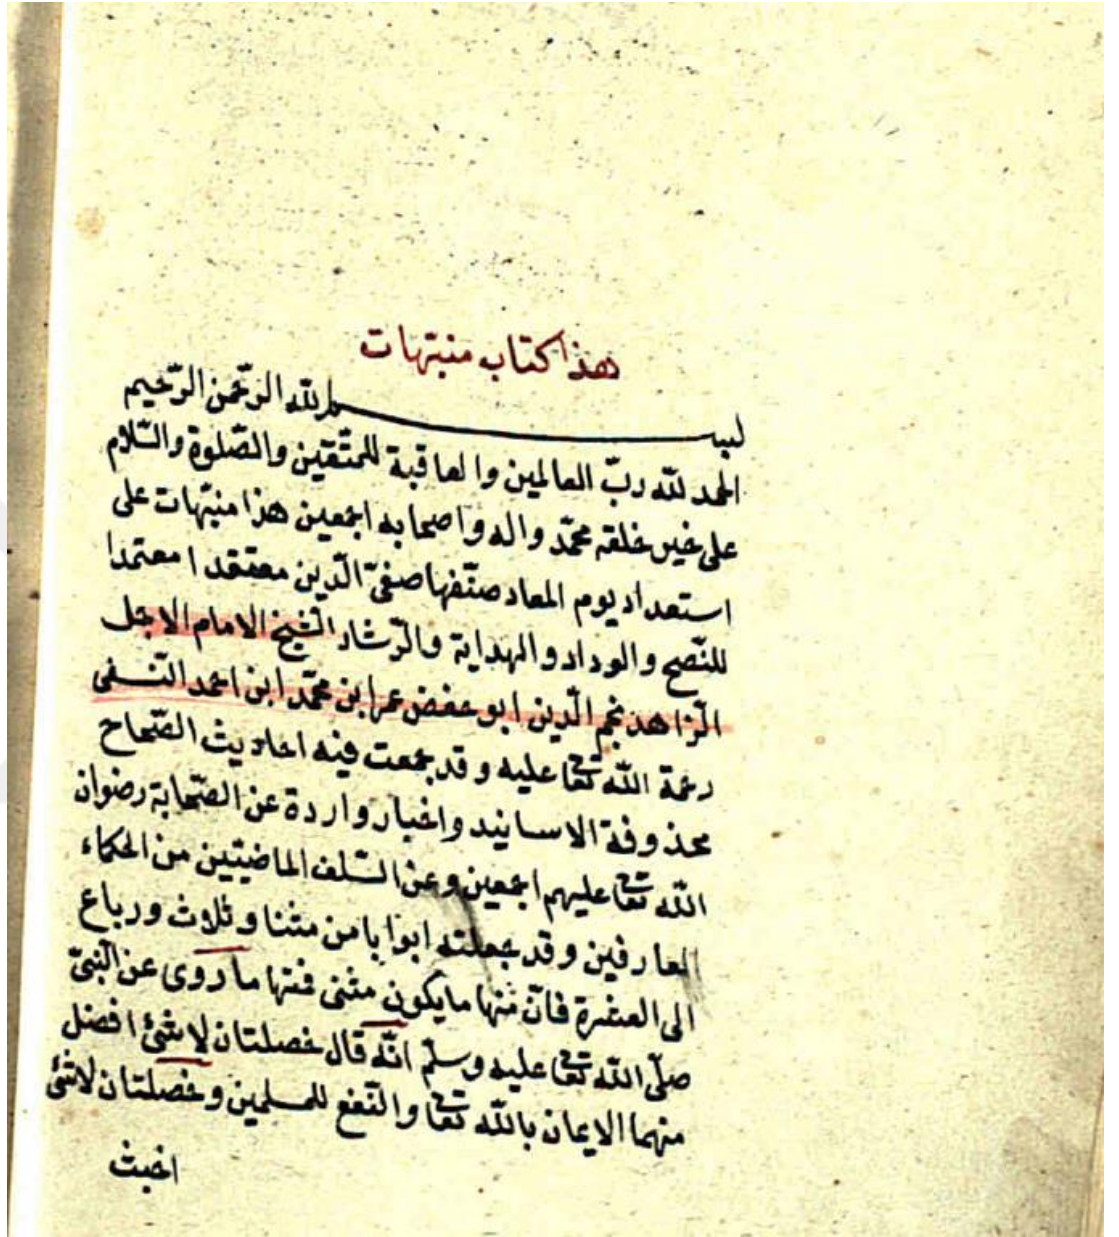 هذا كتاب منبّهات
بسم الله الرّحمن الرّحيم
الحمد لله ربّ العالمين والعاقبة للمتّقين والصّلوة والسّلام
على خير خلقه محمّد واله واصحابه اجمعين هذا منبّهات على
استعداد يوم المعاد صنّفها صفىّ الدّين معتقدا معتمدا
للنّصح والوداد والهداية والرّشاد الشّيخ الامام الاجل
الزّاهد نجم الدّين ابو حفض عمر ابن محمّد ابن احمد النّسفى
رحمة الله تعا عليه وقد جمعت فيه احاديث الصّحاح
محذوفة الاسانيد واخبار واردة عن الصّحابة رضوان
الله تعا عليهم اجمعين وعن السّلف الماضيّين من الحكماء
العارفين وقد جعلته ابوابا من مثنا وثلاث ورباع
الى العشرة فانّ منها ما يكون مثنى فمنها ما روى عن النّبىّ
صلّى الله تعا عليه وسلّم انّه قال خصلتان لا شئ افضل
منهما الايمان بالله تعا والنّفع للمسلمين وخصلتان لا شئ
اخبث